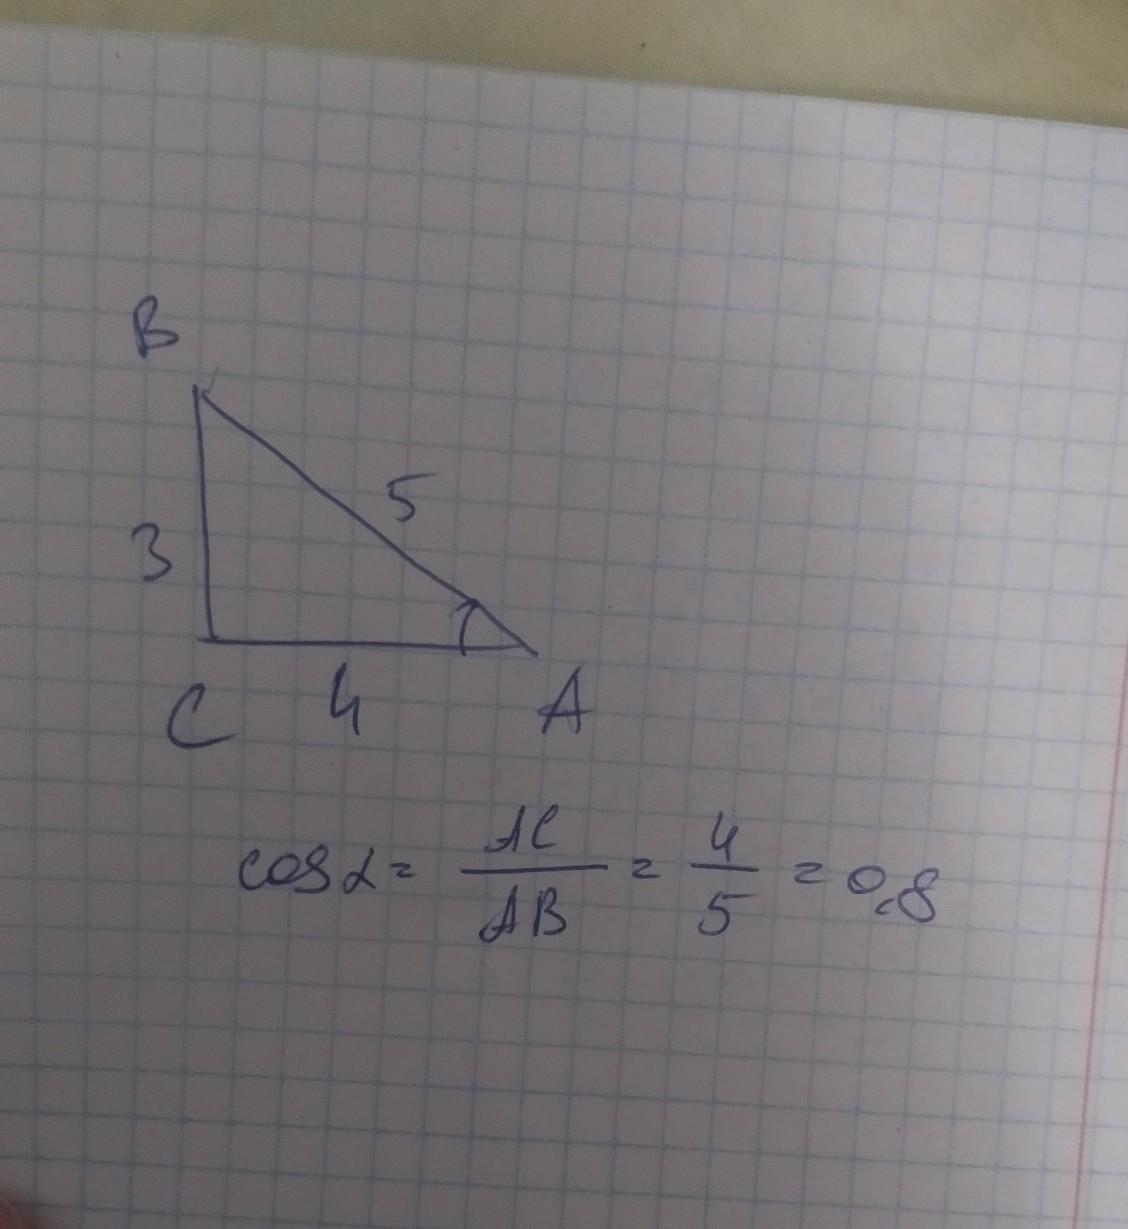 B
5
3
C 4 A
cos α = AC/AB = 4/5 = 0,8